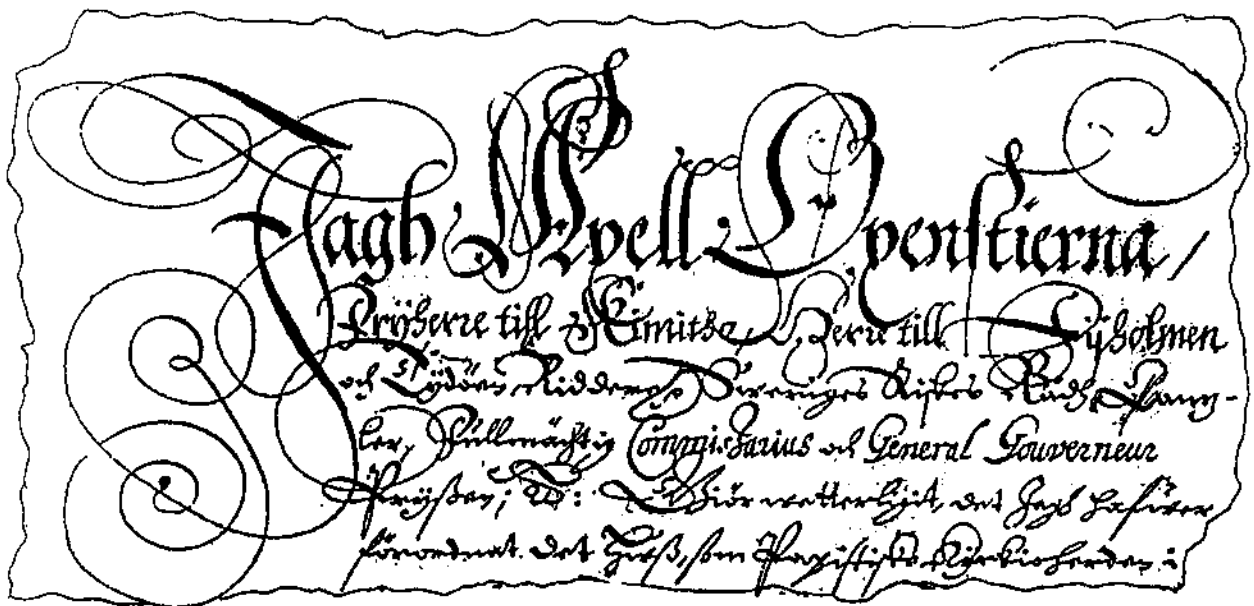 Jagh Axell Oxenstierna /
Frijherre till Kimitho, Herre till Fijholmen
och Tydöen Riddere, Sweriges Rikes Rådh, Cantz-
ler, Fullmächtig Commissarius och General Gouverneur
Prÿssen; etc: Giör wetterligit, det Jagh hafwer
förordnat. det Huuß, som Papistiske Kyrkioherden i